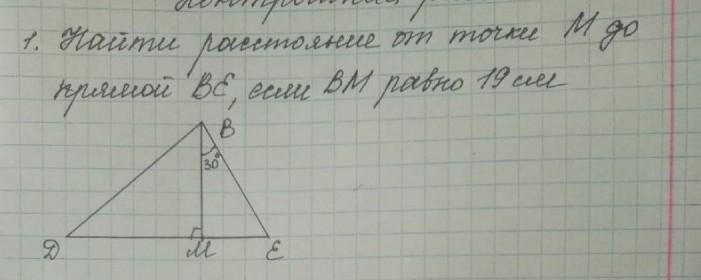 1. Найти расстояние от точки М до
прямой ВЕ, если ВМ равно 19 см
В
30°
Д
М
Е